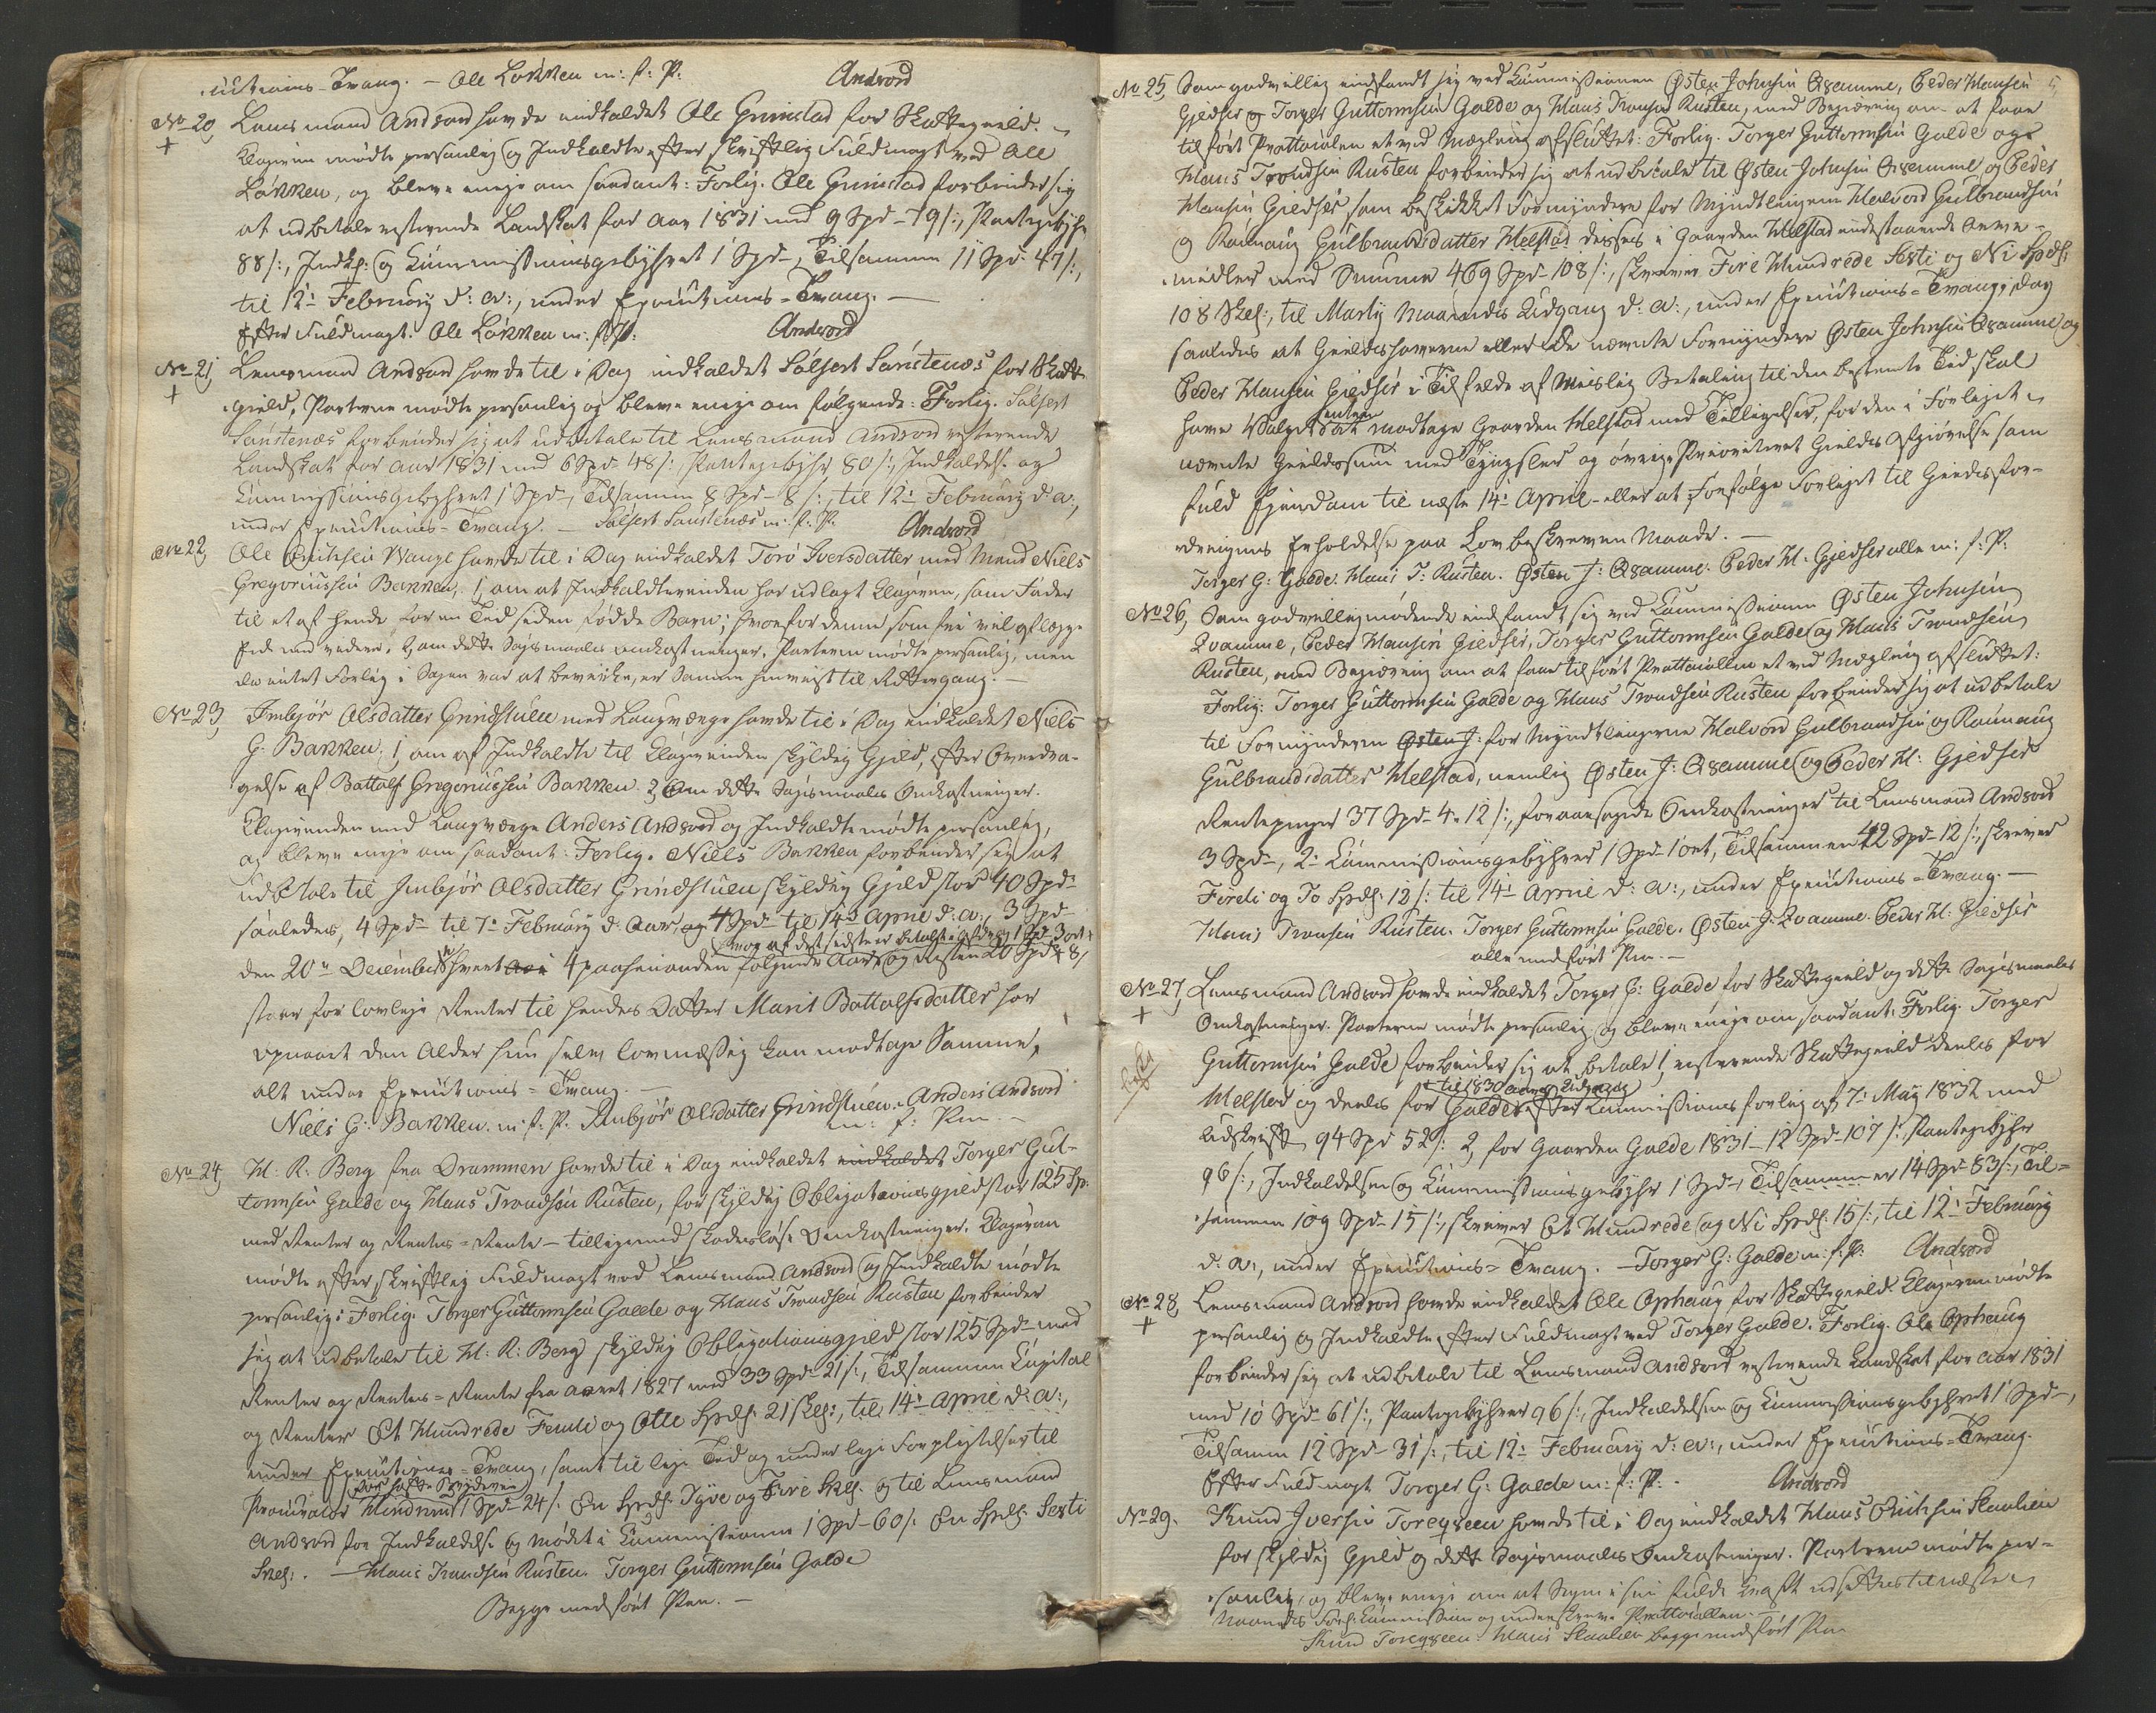 -cutions-Tvang. – Ole Løkken m: f: P: Andvord
No 20, Lensmand Andvord havde indkaldet Ole Grimstad for Skattegield.
+ Klageren mødte personlig og Indkaldte efter skriftlig Fuldmagt ved Ole
Løkken, og bleve enige om saadant: Forlig. Ole Grimstad forbinder sig
at udbetale resterende Landskat for Aar 1831 med 9 Spd – 79 /:, Pantegebyhr
88 /:, Indk: og Kommissionsgebyhret 1 Spd –, Tilsammen 11 Spd 47 /:,
til 12te February d: A:, under Execution's-Tvang. –
Efter Fuldmagt. Ole Løkken m: f: P: Andvord
No 21, Lensmand Andvord havde til i Dag indkaldet Sølfert Sanstenæs for Skatte-
+ gield, Parterne mødte personlig og bleve enige om følgende: Forlig. Sølfert
Sanstenæs forbinder sig at udbetale til Lensmand Andvord resterende
Landskat for Aar 1831 med 6 Spd 48 /: Pantegebyhr 80 /:, Indkaldelse og
Kommissionsgebyhret 1 Spd –, Tilsammen 8 Spd – 8 /:, til 12te February d: a:,
under Executions-Tvang. – Sølfert Sanstenæs m: f: P: Andvord
No 22, Ole Erichsen Wange havde til i Dag indkaldet Torø Iversdatter med Mand Niels
Gregoriussen Bakken, 1, om at Indkaldterinden har udlagt Klageren, som Fader
til et af hende for en Tid siden født Barn; hvorfor denne som frie vil aflægge
Eed med videre. 2, om dette Søgsmaals Omkostninger. Parterne mødte personlig, men
da intet Forlig i Sagen var at bevirke, er Samme henviist til Rettergang. –
No 23, Imbjør Olsdatter Grindstuen med Laugværge havde til i Dag indkaldet Niels
G. Bakken. 1, om af Indkaldte til Klagerinden skyldig Gjeld, efter Overdra-
gelse af Battolf Gregoriussen Bakken. 2, Om dette Søgsmaals Omkostninger.
Klagerinden med Laugværge Anders Andvord og Indkaldte mødte personlig,
og bleve enige om saadant: Forlig. Niels Bakken forbinder sig at
udbetale til Imbjør Olsdatter Grindstuen skyldig Gjeld stor 40 Spd
saaledes, 4 Spd – til 7de February d: Aar og 4 Spd – til 14de April d: a:, 3 Spd –
hvoraf det sidste er betalt
den 20de December hvert 4 paahinanden følgende Aar, og Resten 20 Spd 48 /
staar for lovlige Renter til hendes Datter Marit Battolfsdatter har
opnaaet den Alder hun selv lovmæssig kan modtage Samme,
alt under Executions-Tvang. –
Niels G: Bakken. m: f: P. Imbjør Olsdatter Grindstuen. Anders Andvord
m: f: Pen –
No 24, H: R: Berg fra Drammen havde til i Dag indkaldet indkaldet Torger Gut-
tormsen Galde og Hans Trondsen Rusten, for skyldig Obligationsgjeld stor 125 Sp:
med Renter og Renters-Rente – tilligemed skadesløse Omkostninger. Klageren
mødte efter skriftlig Fuldmagt ved Lensmand Andvord og Indkaldte mødte
personlig: Forlig. Torger Guttormsen Galde og Hans Trondsen Rusten forbinder
sig at udbetale til H: R: Berg skyldig Obligationsgjeld stor 125 Spd med
Renter og Renters-Rente fra Aaret 1827 med 33 Spd – 21 /:, Tilsammen Capital
og Renter Et Hundrede Femti og Otte Spds: 21 Skl:, til 14de April d: a:,
under Executions-Tvang, samt til lige Tid og under lige Forpligtelser til
Procurator 1 Spd – 24 /: En Spds: Tyve og Fire Skl: og til Lensmand
Andvord for Indkaldelse og Mødet i Kommissionen 1 Spd – 60 /: En Spds: Sexti
Skl:. – Hans Trondsen Rusten. Torger Guttormsen Galde
Begge med ført Pen. –
No 25, Som godvillig indfandt sig ved Kommissionen Østen Johnsen Qvamme, Peder Hansen 5
Gjedser og Torger Guttormsen Galde og Hans Tronsen Rusten, med Begjæring om at faae
tilført Prottocolen et ved Mægling afsluttet: Forlig. Torger Guttormsen Galde og
Hans Trondsen Rusten forbinder sig at udbetale til Østen Johnsen Qvamme og Peder
Hansen Giedser, som beskikket Formyndere for Myndtlingerne Halvord Gulbrandsen
og Rannaug Gulbrandsdatter Helstad deres i Gaarden Helstad indestaaende Arve-
midler med Summa 469 Spd – 108 /:, skriver Fire Hundrede Sexti og Ni Spds:
108 Skl:, til Martij Maaneds Udgang d: a:, under Executions-Tvang, dog
saaledes at Gieldshaverne eller de nævnte Formyndere Østen Johnsen Qvamme og
Peder Hansen Giedser i Tilfælde af Misslig Betaling til den bestemte Tid skal
have Valget enten modtage Gaarden Helstad med Tilliggelser, for den i Forliget
nævnte Gieldssum med Thyngsler og øvrige Prioriteret Gields Afgiørelse som
fuld Ejendom til næste 14de April – eller at forfølge Forliget til Gields for-
dringens Erholdelse paa Lov beskreven Maade. –
Torger G: Galde. Hans T: Rusten. Østen J: Qvamme. Peder H: Gjedser alle m: f: P:
No 26, Som godvillig mødende indfandt sig ved Kommissionen Østen Johnsen
Qvamme, Peder Hansen Giedser, Torger Guttormsen Galde og Hans Trondsen
Rusten, med Begjæring om at faae tilført Prottocollen et ved Mægling afsluttet:
Forlig: Torger Guttormsen Galde og Hans Trondsen Rusten forbinder sig at udbetale
til Formynderen Østen J: for Myndtlingerne Halvord Gulbrandsen og Rannaug
Gulbrandsdatter Helstad, nemlig Østen J: Qvamme og Peder H: Gjedser
Rentepenger 37 Spd – 4 – 12 /:, foraarsagede Omkostninger til Lensmand Andvord
3 Spd –, 2: Kommissionsgebyhrer 1 Spd – 1 ort, Tilsammen 42 Spd – 12 /:, skriver
Fireti og To Spds: 12 /: til 14de April d: a:, under Executions-Tvang. –
Hans Tronsen Rusten. Torger Guttormsen Galde. Østen J: Qvamme. Peder H: Giedser
alle med ført Pen. –
No 27, Lensmand Andvord havde indkaldet Torger G: Galde for Skattegield og dette Søgsmaals
+ Omkostninger. Parterne mødte personlig og bleve enige om saadant: Forlig. Torger
Guttormsen Galde forbinder sig at betale 1, resterende Skattegield deels for
til 1830 Aars Udgang
Helstad og deels for Galde efter Kommissions forlig af 7de May 1832 med
Udskrift 94 Spd 52 /: 2, for Gaarden Galde 1831 – 12 Spd – 107 /: Pantegebyhr
96 /:, Indkaldelsen og Kommissionsgebyhr 1 Spd –, Tilsammen er 14 Spd – 83 /:, Til-
sammen 109 Spd – 15 /:, skriver Et Hundrede og Ni Spds: 15 /:, til 12te February
d: a:, under Executions-Tvang. – Torger G: Galde m: f: P: Andvord
No 28, Lensmand Andvord havde indkaldet Ole Ophaug for Skattegield. Klageren mødte
+ personlig og Indkaldte efter Fuldmagt ved Torger Galde. Forlig. Ole Ophaug
forbinder sig at udbetale til Lensmand Andvord resterende Landskat for Aar 1831
med 10 Spd 61 /:, Pantegebyhrer 96 /:, Indkaldelsen og Kommissionsgebyhret 1 Spd –,
Tilsammen 12 Spd – 31 /:, til 12te February d: a:, under Executions-Tvang.
Efter Fuldmagt Torger G: Galde m: f: P: – Andvord
No 29. Knud Iversen Toreqveen havde til i Dag indkaldet Hans Erichsen Slaalien
for skyldig Gjeld og dette Søgsmaals Omkostninger. Parterne mødte per-
sonlig, og bleve enige om at Sagen i sin fulde Kraft udsættes til næste
Maaneds Forl: Kommission og underskreve Prottocollen. –
Knud Toreqveen. Hans Slaalien begge med ført Pen